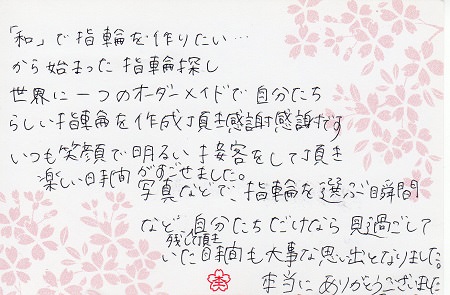 「和」で指輪を作りたい…
から始まった指輪探し
世界に一つのオーダーメイドで自分たち
らしい指輪を作成頂き感謝感謝です
いつも笑顔で明るい接客をして頂き
楽しい時間がすごせました。
写真などで、指輪を選ぶ瞬間
など、自分たちだけなら見過ごして
残して頂き
いた時間も大事な思い出となりました。
本当にありがとうございました